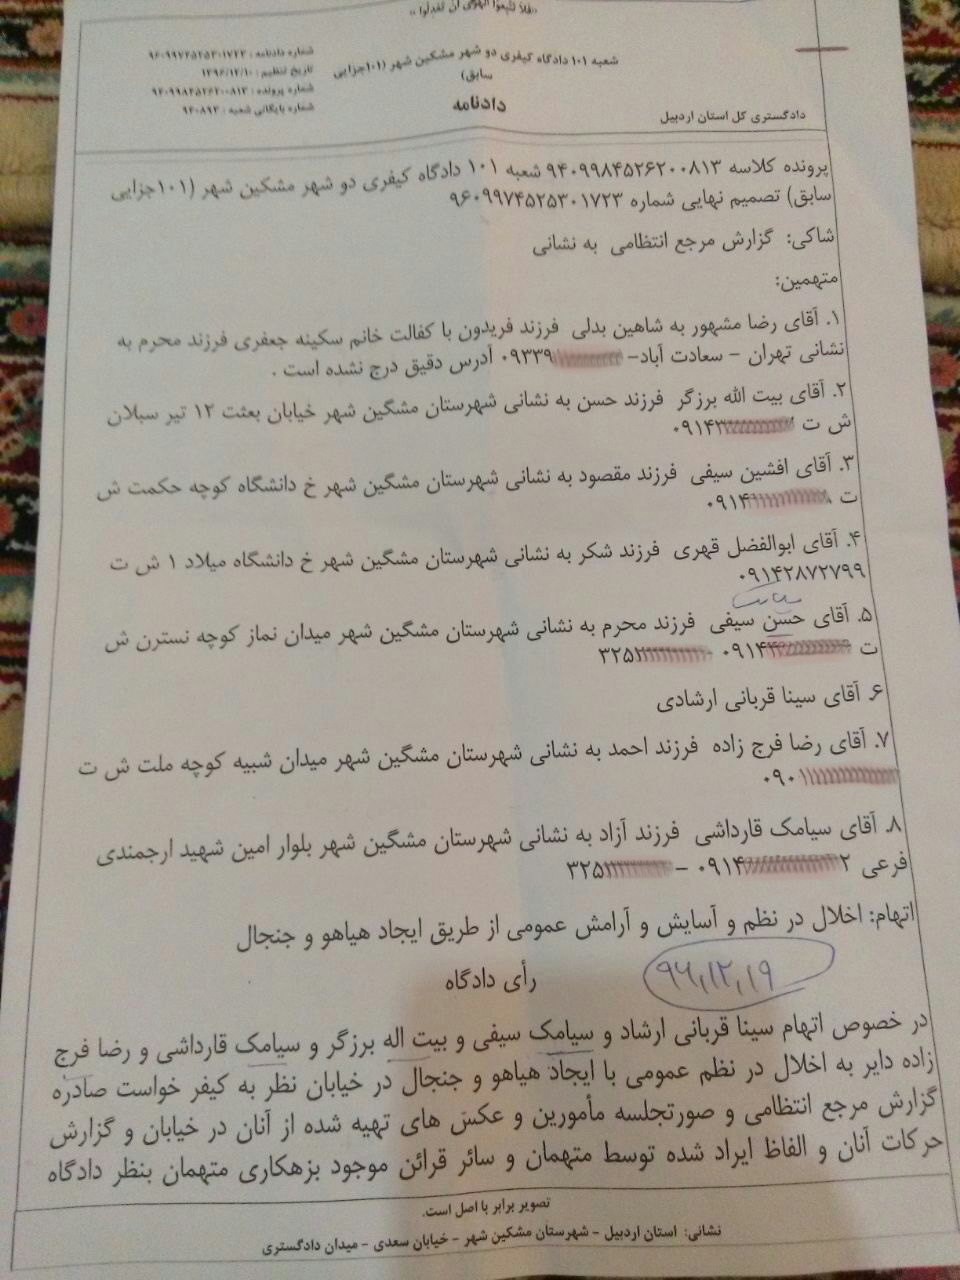 «فلا تتبعوا الهوی ان تعدلوا»
شعبه ۱۰۱ دادگاه کیفری دو شهر مشکین شهر (۱۰۱جزایی
سابق)
دادنامه
شماره دادنامه : ۹۶۰۹۹۷۴۵۲۵۳۰۱۷۲۳
تاریخ تنظیم : ۱۳۹۶/۱۲/۱۰
شماره پرونده : ۹۴۰۹۹۸۴۵۲۶۲۰۰۸۱۳
شماره بایگانی شعبه : ۹۴۰۸۹۳
دادگستری کل استان اردبیل
پرونده کلاسه ۹۴۰۹۹۸۴۵۲۶۲۰۰۸۱۳ شعبه ۱۰۱ دادگاه کیفری دو شهر مشکین شهر (۱۰۱جزایی
سابق) تصمیم نهایی شماره ۹۶۰۹۹۷۴۵۲۵۳۰۱۷۲۳
شاکی: گزارش مرجع انتظامی به نشانی
متهمین:
۱. آقای رضا مشهور به شاهین بدلی فرزند فریدون با کفالت خانم سکینه جعفری فرزند محرم به
نشانی تهران - سعادت آباد- ۰۹۳۳۹ آدرس دقیق درج نشده است .
۲. آقای بیت الله برزگر فرزند حسن به نشانی شهرستان مشگین شهر خیابان بعثت ۱۲ تیر سبلان
ش ت ۰۹۱۴۳
۳. آقای افشین سیفی فرزند مقصود به نشانی شهرستان مشگین شهر خ دانشگاه کوچه حکمت ش
ت ۰۹۱۴
۴. آقای ابوالفضل قهری فرزند شکر به نشانی شهرستان مشگین شهر خ دانشگاه میلاد ۱ ش ت
۰۹۱۴۲۸۷۲۷۹۹
سیامک
۵. آقای حسن سیفی فرزند محرم به نشانی شهرستان مشگین شهر میدان نماز کوچه نسترن ش
ت ۰۹۱۴۴ - ۳۲۵۲
۶. آقای سینا قربانی ارشادی
۷. آقای رضا فرج زاده فرزند احمد به نشانی شهرستان مشگین شهر میدان شبیه کوچه ملت ش ت
۰۹۰۱
۸. آقای سیامک قارداشی فرزند آزاد به نشانی شهرستان مشگین شهر بلوار امین شهید ارجمندی
فرعی ۲ ۰۹۱۴ - ۳۲۵
اتهام: اخلال در نظم و آسایش و آرامش عمومی از طریق ایجاد هیاهو و جنجال
رأی دادگاه
۹۶,۱۲,۱۹
در خصوص اتهام سینا قربانی ارشاد و سیامک سیفی و بیت اله برزگر و سیامک قارداشی و رضا فرج
زاده دایر به اخلال در نظم عمومی با ایجاد هیاهو و جنجال در خیابان نظر به کیفر خواست صادره
گزارش مرجع انتظامی و صورتجلسه مأمورین و عکس های تهیه شده از آنان در خیابان و گزارش
حرکات آنان و الفاظ ایراد شده توسط متهمان و سائر قرائن موجود بزهکاری متهمان بنظر دادگاه
تصویر برابر با اصل است.
نشانی: استان اردبیل - شهرستان مشکین شهر - خیابان سعدی - میدان دادگستری